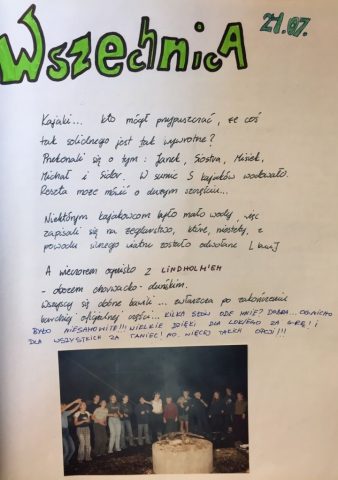 WszechnicA 21.07.
Kajaki... kto mógł przypuszczać, że coś
tak solidnego jest tak wywrotne?
Przekonali się o tym: Janek, Siostra, Misiek,
Michał i Sidor. W sumie 5 kajaków wodowało.
Reszta może mówić o dużym szczęściu...
Niektórym kajakowcom było mało wody, więc
zapisali się na żeglarstwo, które, niestety, z
powodu silnego wiatru zostało odwołane
A wieczorem ognisko z LINDHOLM'EM
- obozem chorwacko - duńskim.
Wszyscy się dobrze bawili... zwłaszcza po zakończeniu
bardziej oficjalnej części... KILKA SŁÓW ODE MNIE? DOBRA... OGNICHO
BYŁO NIESAMOWITE!!! WIELKIE DZIĘKI DLA ZA GRĘ! I
DLA WSZYSTKICH ZA TANIEC! NO, WIĘCEJ TAKICH OPCJI!!!